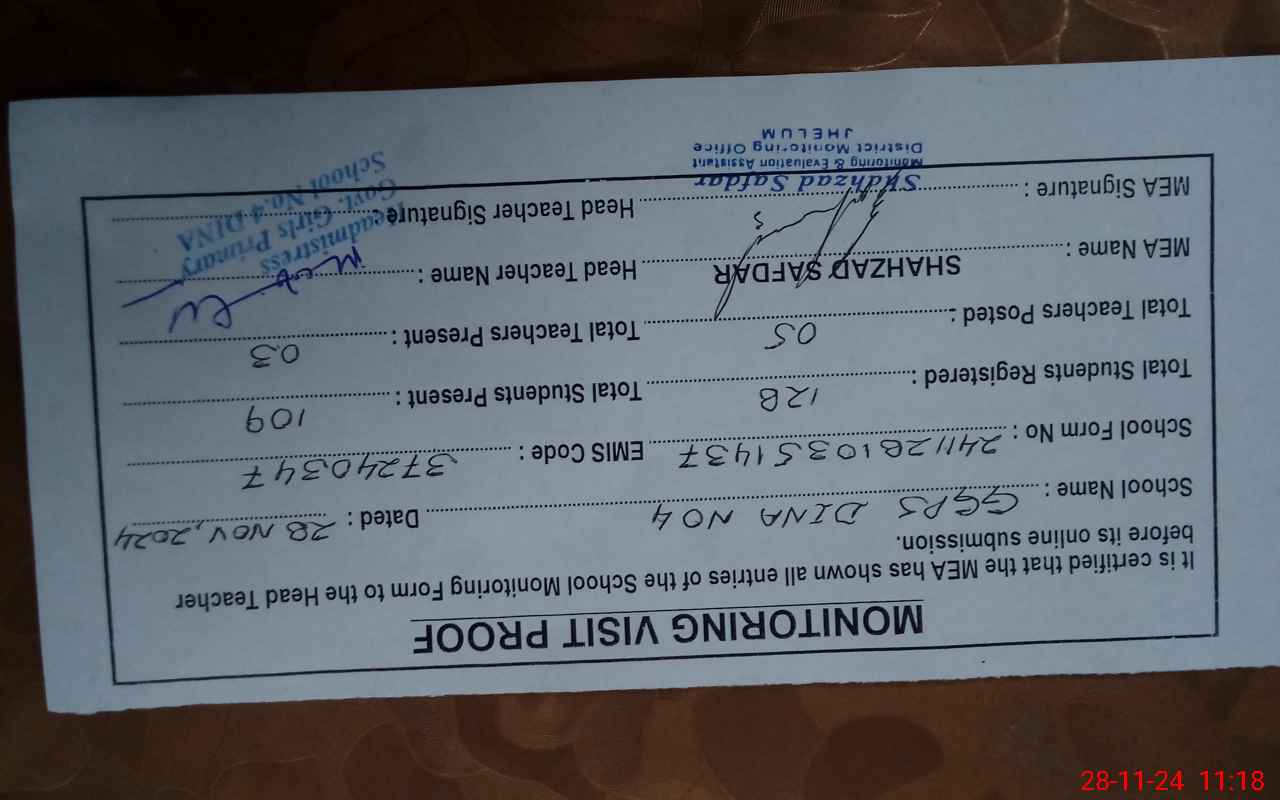 MONITORING VISIT PROOF
It is certified that the MEA has shown all entries of the School Monitoring Form to the Head Teacher
before its online submission.
School Name : GGPS DINA NO 4 Dated : 28 NOV, 2024
School Form No : 24112810351437 EMIS Code : 37240347
Total Students Registered : 128 Total Students Present : 109
Total Teachers Posted : 05 Total Teachers Present : 03
MEA Name : SHAHZAD SAFDAR Head Teacher Name :
MEA Signature : Head Teacher Signature :
Shahzad Safdar
Monitoring & Evaluation Assistant
District Monitoring Office
JHELUM
Headmistress
Govt. Girls Primary
School No.4 DINA
28-11-24 11:18